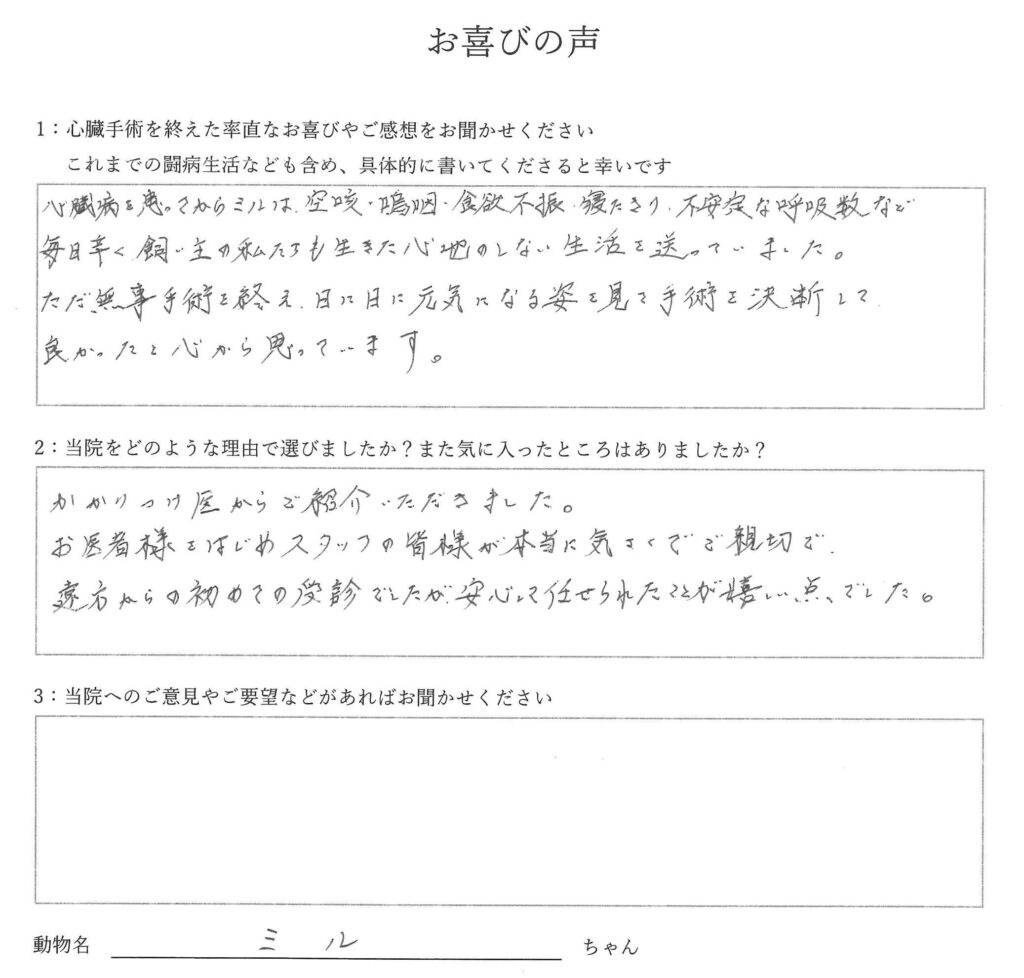 お喜びの声
1：心臓手術を終えた率直なお喜びやご感想をお聞かせください
これまでの闘病生活なども含め、具体的に書いてくださると幸いです
心臓病を患ってからミルは、空咳・嗚咽・食欲不振・寝たきり・不安定な呼吸数など
毎日辛く、飼い主の私たちも生きた心地のしない生活を送っていました。
ただ、無事手術を終え、日に日に元気になる姿を見て手術を決断して
良かったと心から思っています。
2：当院をどのような理由で選びましたか？また気に入ったところはありましたか？
かかりつけ医からご紹介いただきました。
お医者様をはじめスタッフの皆様が本当に気さくでご親切で、
遠方からの初めての受診でしたが、安心して任せられたことが嬉しい点でした。
3：当院へのご意見やご要望などがあればお聞かせください
動物名 ミル ちゃん